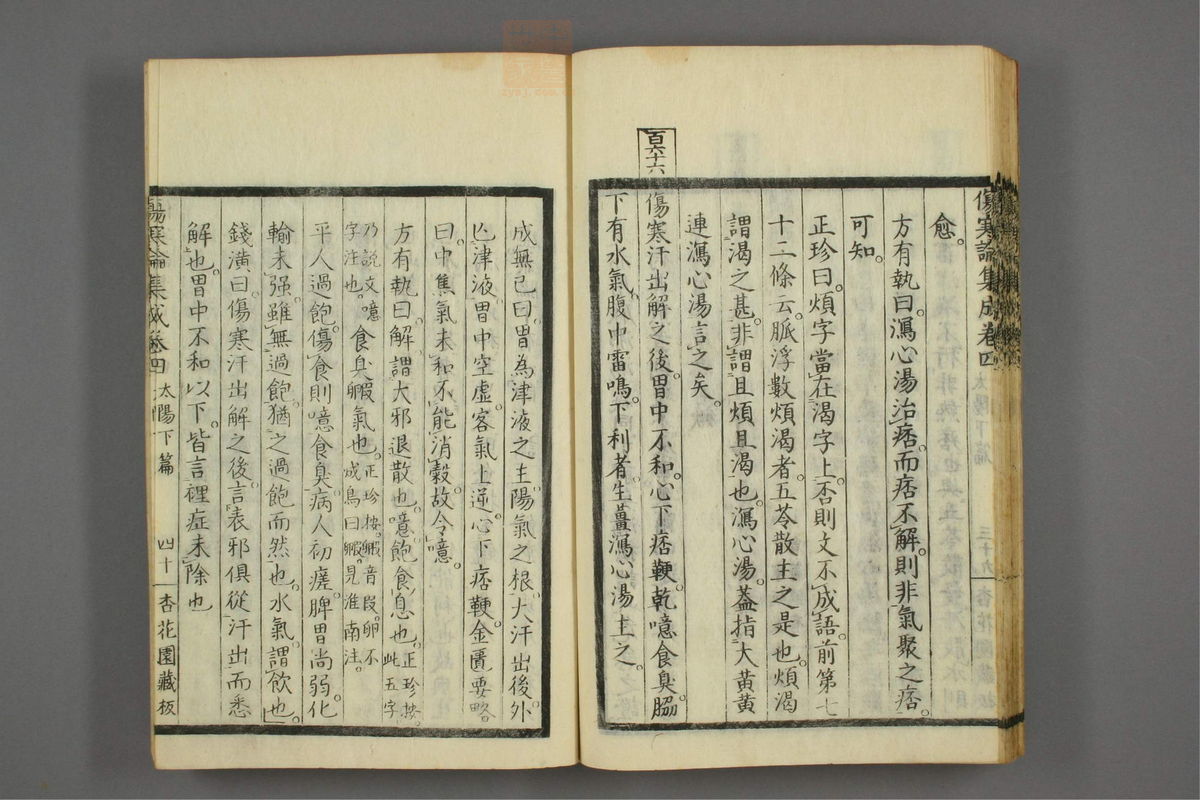 傷寒論集成卷四
愈。
方有執曰。瀉心湯治痞。而痞不解。則非氣聚之痞。
可知。
正珍曰。煩字當在渴字上。否則文不成語。前第七
十二條云。脈浮數煩渴者。五苓散主之是也。煩渴
謂渴之甚。非謂且煩且渴也。瀉心湯。蓋指大黃黃
連瀉心湯言之矣。
百六十六
傷寒汗出解之後。胃中不和。心下痞鞕。乾噫食臭。脇
下有水氣。腹中雷鳴。下利者。生薑瀉心湯主之。
成無己曰。胃為津液之主。陽氣之根。大汗出後。外
亾津液。胃中空虛。客氣上逆。心下痞鞕。金匱要略。
曰。中焦氣未和。不能消穀。故令噫。
方有執曰。解謂大邪退散也。噫飽食息也。正珍按。此五字
乃說文噫字注也。食臭㗇氣也。正珍按。㗇音叚。卵不成鳥曰㗇。見淮南注。
平人過飽傷食。則噫食臭。病人初瘥。脾胃尚弱。化
輸未強。雖無過飽。猶之過飽而然也。水氣謂飲也。
錢潢曰。傷寒汗出解之後。言表邪俱從汗出而悉
解也。胃中不和以下。皆言裡症未除也
傷寒論集成卷四 太陽下篇 四十 杏花園藏板